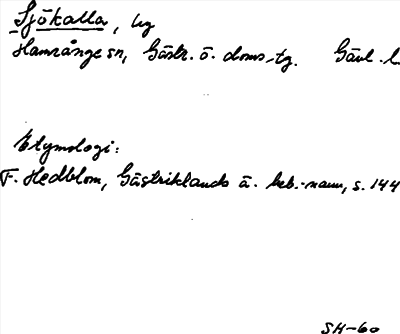 Sjökalla, by
Hamrånge sn, Gästr. ö. doms.-tg. Gävl. l.
Etymologi:
F. Hedblom, Gästriklands ä. beb.-namn, s. 144
SH-60